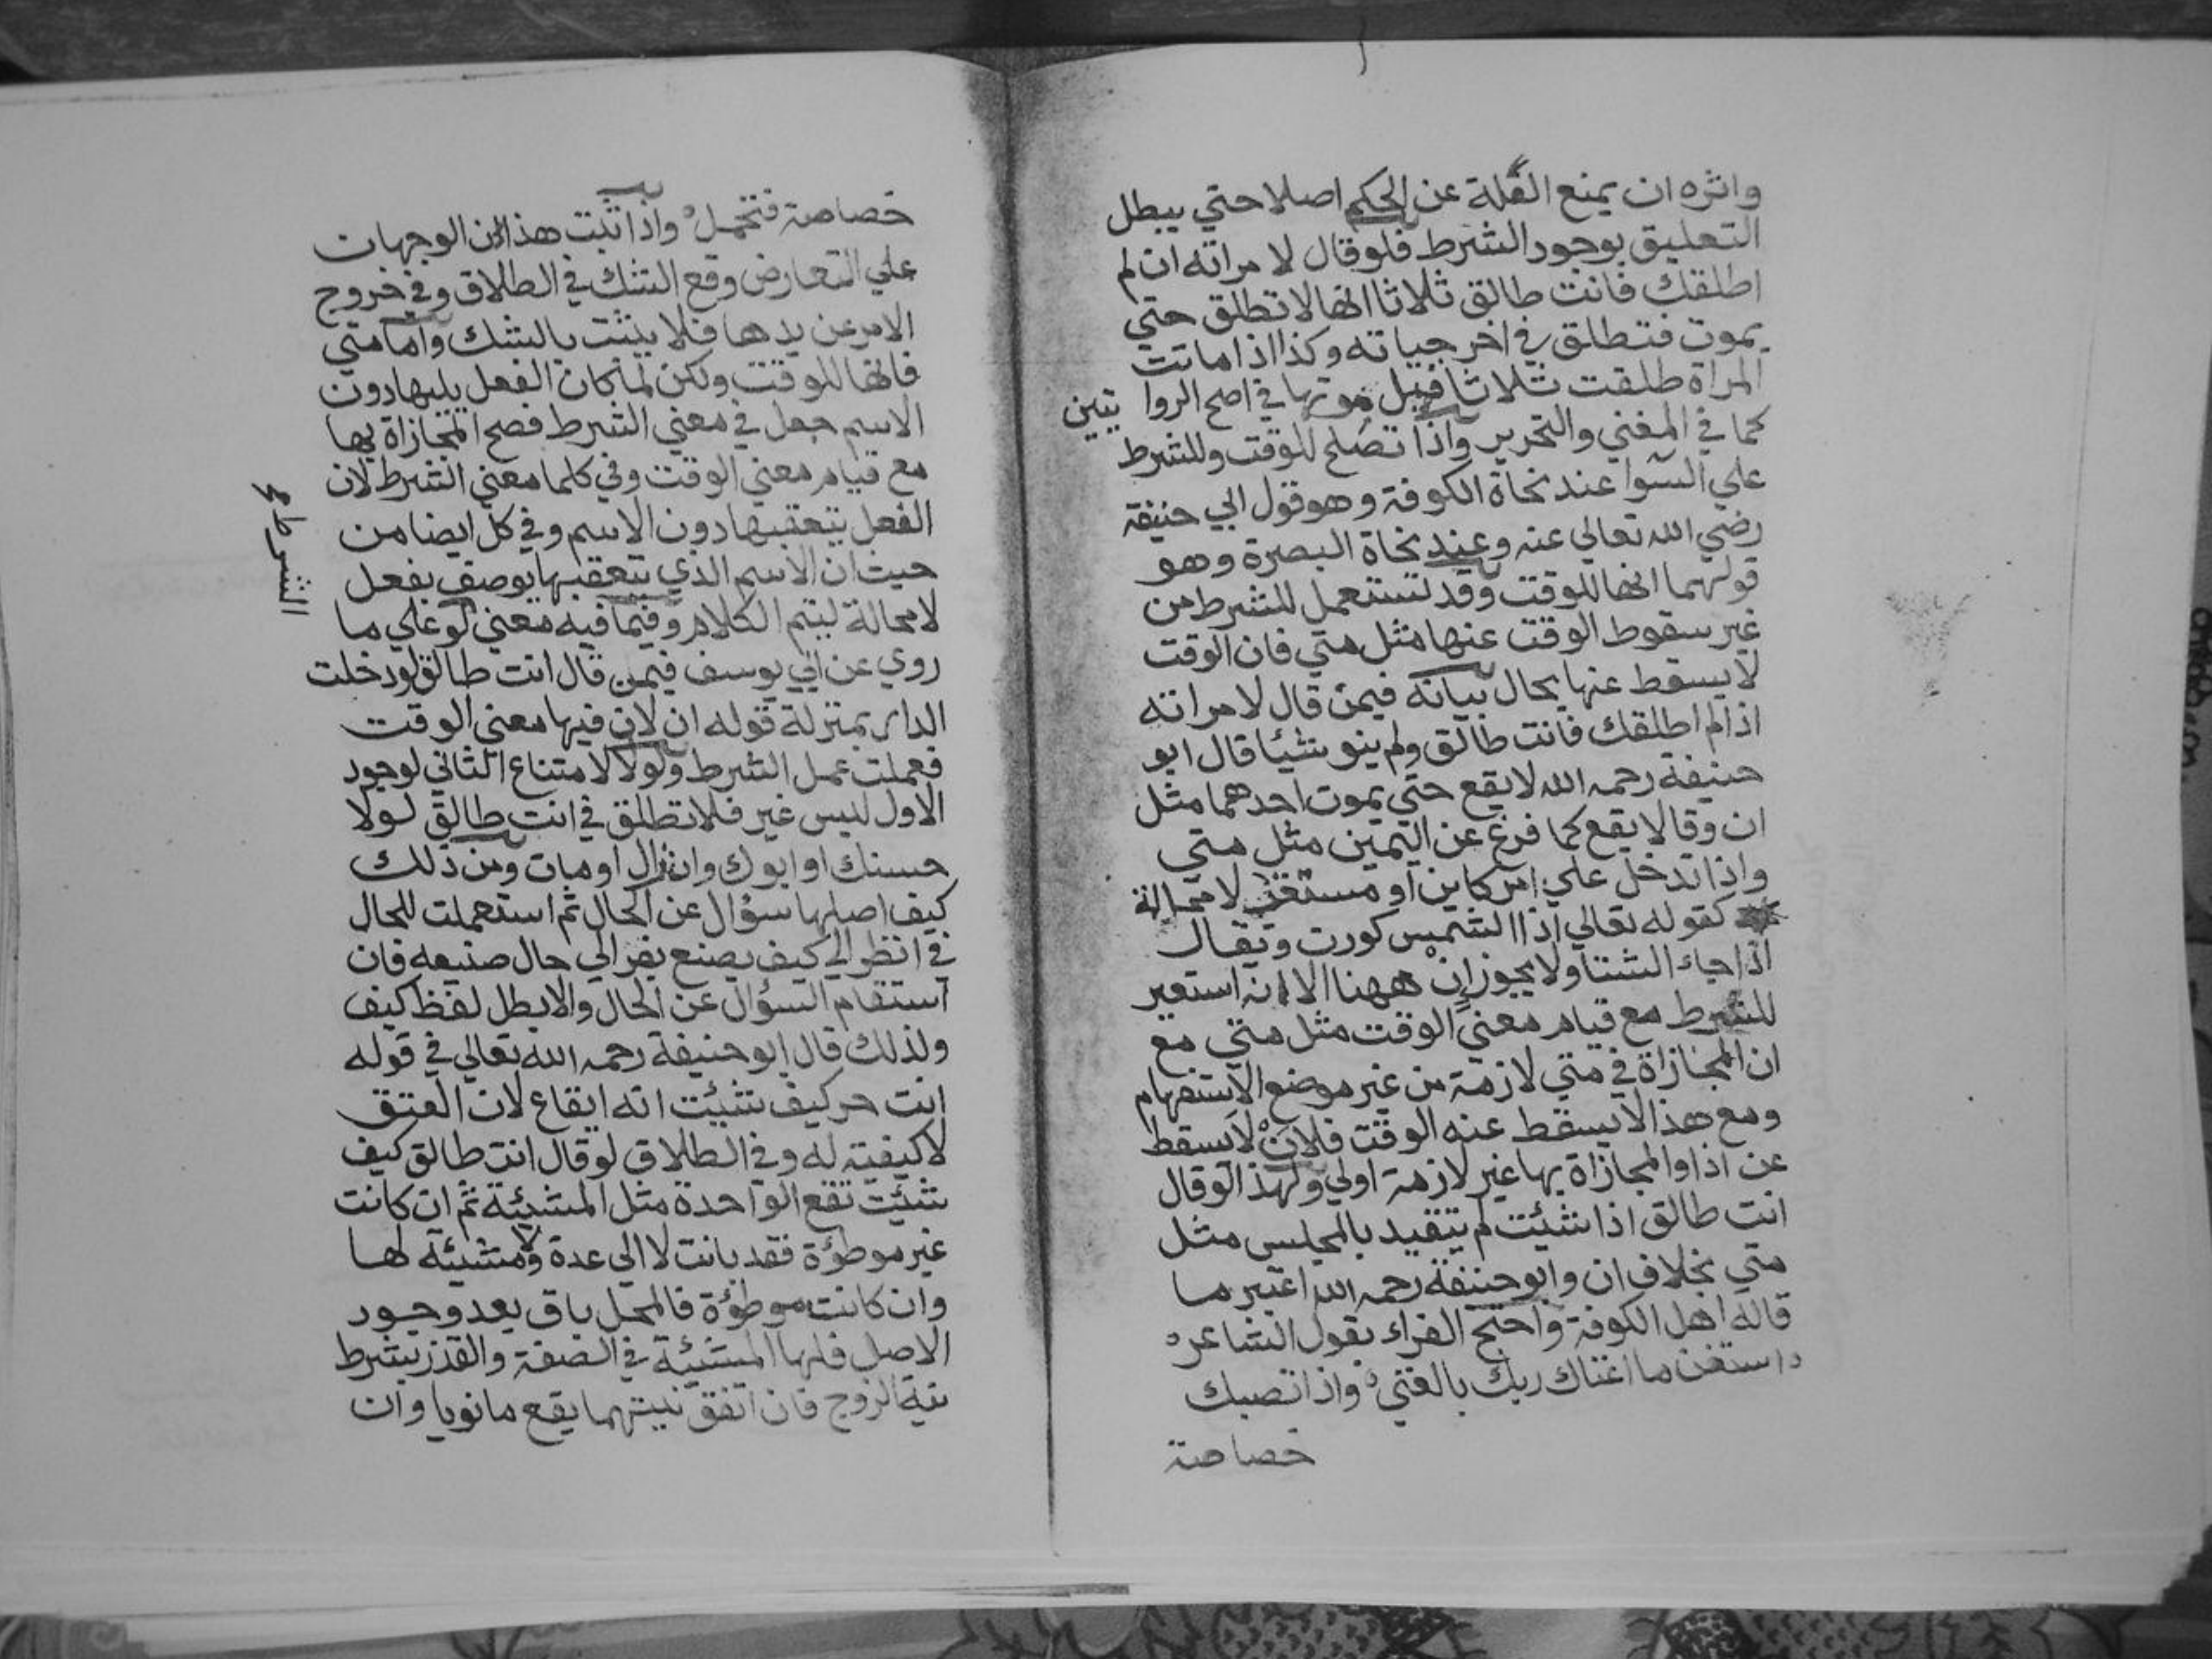 واثره ان يمنع العلة عن الحكم اصلا حتي يبطل
التعليق بوجود الشرط فلو قال لامراته ان لم
اطلقك فانت طالق ثلاثا انها لا تطلق حتي
يموت فتطلق في اخر حياته وكذا اذا ماتت
المراة طلقت ثلاثا قبل موتها في اصح الروايتين
كما في المغني والتحرير واذا تصلح للوقت وللشرط
علي السوا عند نحاة الكوفة وهو قول ابي حنيفة
رضي الله تعالي عنه وعند نحاة البصرة وهو
قولهما انها للوقت وقد تستعمل للشرط من
غير سقوط الوقت عنها مثل متي فان الوقت
لا يسقط عنها بحال بيانه فيمن قال لامراته
اذا لم اطلقك فانت طالق ولم ينو شيئا قال ابو
حنيفة رحمه الله لا يقع حتي يموت احدهما مثل
ان وقالا يقع كما فرغ عن اليمين مثل متي
واذا تدخل علي امر كاين او منتظر لا محالة
كقوله تعالي اذا الشمس كورت ويقال
اذا جاء الشتا ولا يجوز ان ههنا الا انه استعير
للشرط مع قيام معني الوقت مثل متي مع
ان المجازاة في متي لازمة من غير موضع الاستفهام
ومع هذا لا يسقط عنه الوقت فلان لا يسقط
عن اذا والمجازاة بها غير لازمة اولي ولهذا لو قال
انت طالق اذا شئت لم يتقيد بالمجلس مثل
متي بخلاف ان وابو حنيفة رحمه الله اعتبر ما
قاله اهل الكوفة واحتج الفراء بقول الشاعر
واستغن ما اغناك ربك بالغني واذا تصبك
خصاصة
خصاصة فتحمل واذا ثبت هذان الوجهان
علي التعارض وقع الشك في الطلاق وفي خروج
الامر عن يدها فلا يثبت بالشك واما متي
فانها للوقت ولكن لما كان الفعل يليها دون
الاسم جعل في معني الشرط فصح المجازاة بها
مع قيام معني الوقت وفي كلما معني الشرط لان
الفعل يتعقبها دون الاسم وفي كل ايضا من
حيث ان الاسم الذي يتعقبها يوصف بفعل
لا محالة ليتم الكلام وفيما فيه معني لو علي ما
روي عن ابي يوسف فيمن قال انت طالق لو دخلت
الدار بمنزلة قوله ان لان فيها معني الوقت
فعملت عمل الشرط ولولا لامتناع الثاني لوجود
الاول ليس غير فلا تطلق في انت طالق لولا
حسنك او ابوك وان زال او مات ومن ذلك
كيف اصلها سؤال عن الحال ثم استعملت للحال
في انظر الي كيف يصنع يفر الي حال صنيعه فان
استقام السؤال عن الحال والا بطل لفظ كيف
ولذلك قال ابو حنيفة رحمه الله تعالي في قوله
انت حر كيف شئت انه ايقاع لان العتق
لا كيفية له وفي الطلاق لو قال انت طالق كيف
شئت تقع الواحدة مثل المشيئة ثم ان كانت
غير موطؤة فقد بانت لا الي عدة ولا مشيئة لها
وان كانت موطؤة فالمحل باق بعد وجود
الاصل فلها المشيئة في الصفة والقذر بشرط
نية الزوج فان اتفق نيتهما يقع ما نويا وان
الشرط